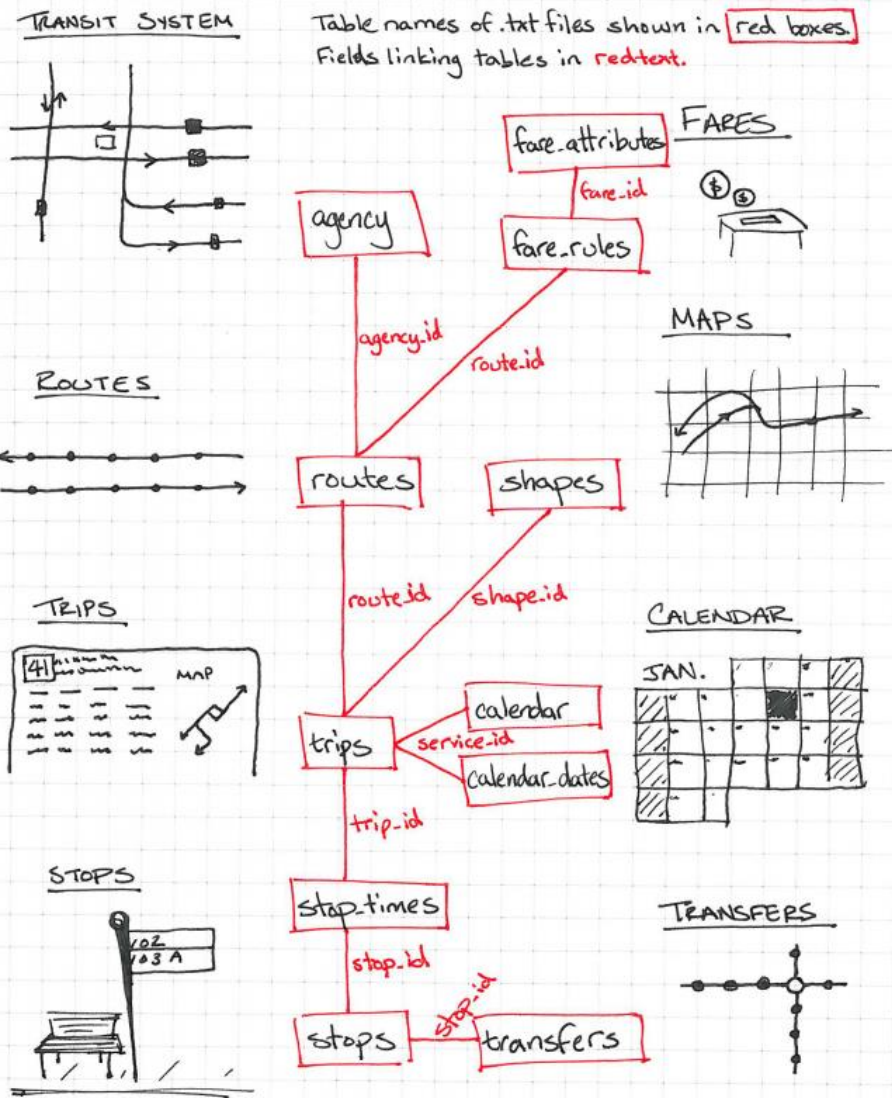 TRANSIT SYSTEM
Table names of .txt files shown in red boxes.
Fields linking tables in red text.
fare_attributes
FARES
fare_id
$
$
agency
fare_rules
agency_id
route_id
MAPS
ROUTES
routes
shapes
route_id
shape_id
TRIPS
41
MAP
CALENDAR
JAN.
calendar
trips
service_id
calendar_dates
trip_id
STOPS
102
103 A
stop_times
TRANSFERS
stop_id
stop_id
stops
transfers